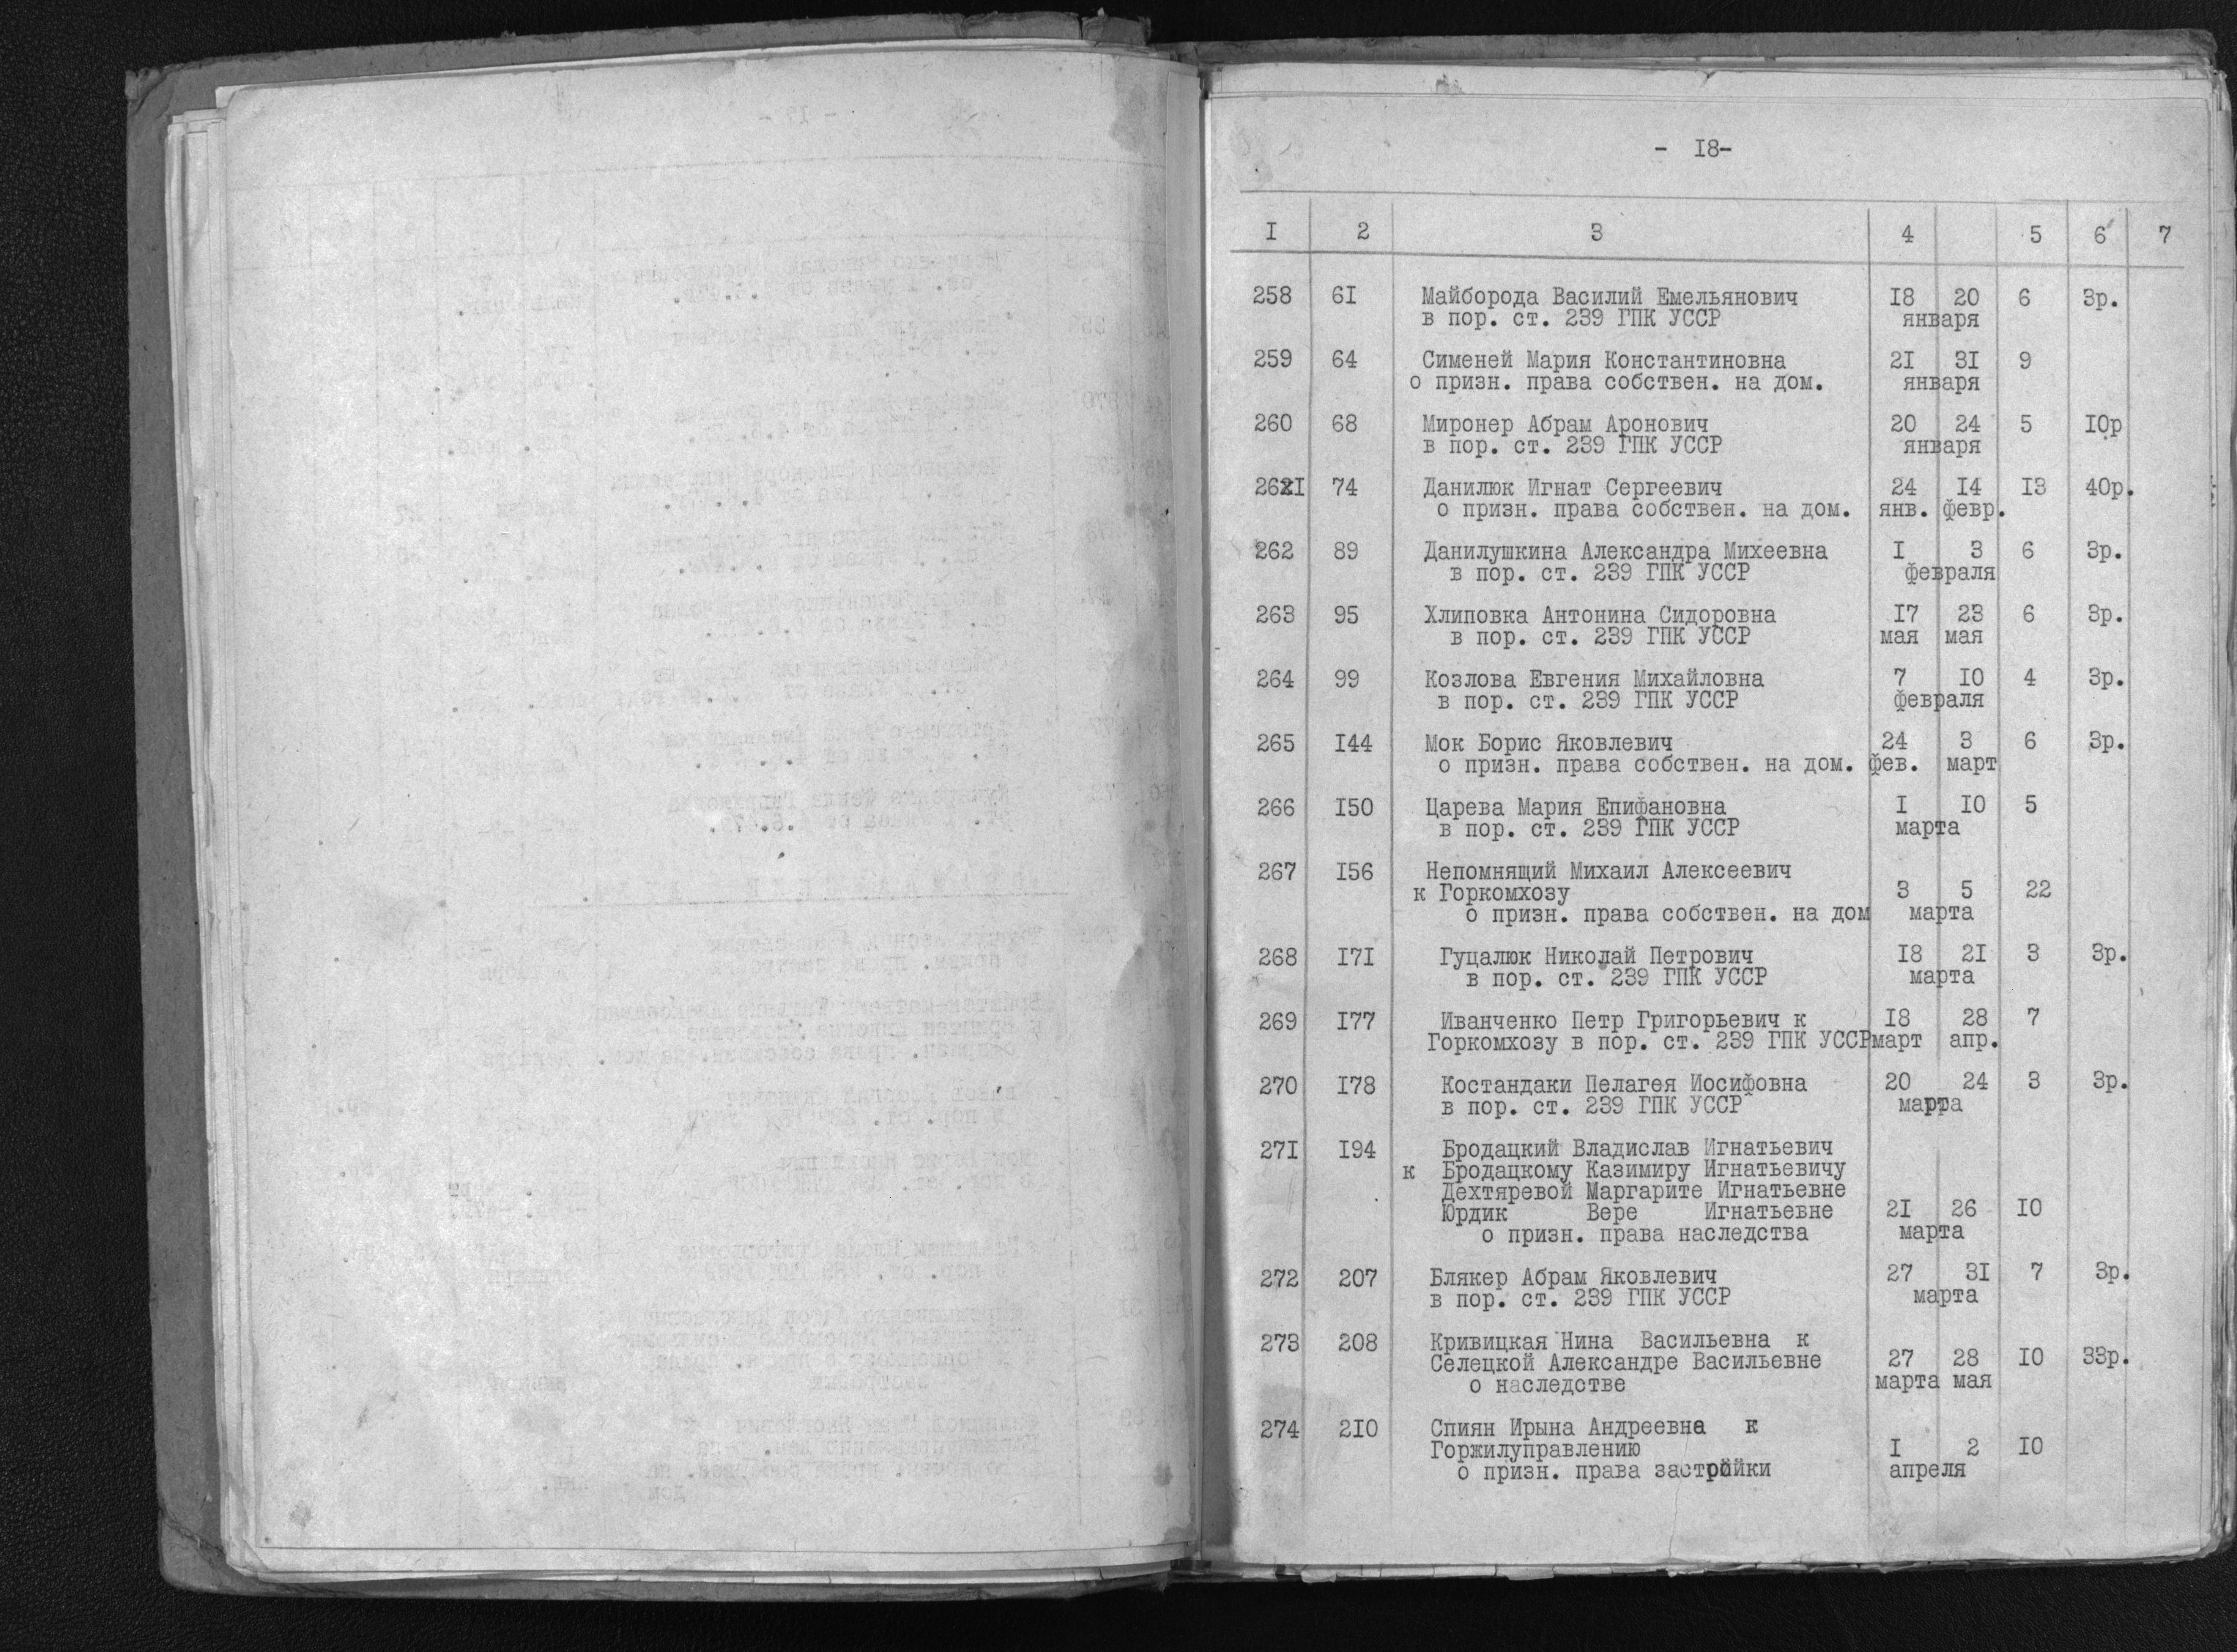 - 18-
1 2 3 4 5 6 7
258 61 Майборода Василий Емельянович 18 20 6 3р.
в пор. ст. 239 ГПК УССР января
259 64 Сименей Мария Константиновна 21 31 9
о призн. права собствен. на дом. января
260 68 Миронер Абрам Аронович 20 24 5 10р
в пор. ст. 239 ГПК УССР января
261 74 Данилюк Игнат Сергеевич 24 14 13 40р.
о призн. права собствен. на дом. янв. февр.
262 89 Данилушкина Александра Михеевна 1 3 6 3р.
в пор. ст. 239 ГПК УССР февраля
263 95 Хлиповка Антонина Сидоровна 17 23 6 3р.
в пор. ст. 239 ГПК УССР мая мая
264 99 Козлова Евгения Михайловна 7 10 4 3р.
в пор. ст. 239 ГПК УССР февраля
265 144 Мок Борис Яковлевич 24 3 6 3р.
о призн. права собствен. на дом. фев. март
266 150 Царева Мария Епифановна 1 10 5
в пор. ст. 239 ГПК УССР марта
267 156 Непомнящий Михаил Алексеевич
к Горкомхозу 3 5 22
о призн. права собствен. на дом марта
268 171 Гуцалюк Николай Петрович 18 21 3 3р.
в пор. ст. 239 ГПК УССР марта
269 177 Иванченко Петр Григорьевич к 18 28 7
Горкомхозу в пор. ст. 239 ГПК УССР март апр.
270 178 Костандаки Пелагея Иосифовна 20 24 3 3р.
в пор. ст. 239 ГПК УССР марта
271 194 Бродацкий Владислав Игнатьевич
к Бродацкому Казимиру Игнатьевичу
Дехтяревой Маргарите Игнатьевне
Юрдик Вере Игнатьевне 21 26 10
о призн. права наследства марта
272 207 Блякер Абрам Яковлевич 27 31 7 3р.
в пор. ст. 239 ГПК УССР марта
273 208 Кривицкая Нина Васильевна к
Селецкой Александре Васильевне 27 28 10 33р.
о наследстве марта мая
274 210 Спиян Ирына Андреевна к
Горжилуправлению 1 2 10
о призн. права застройки апреля